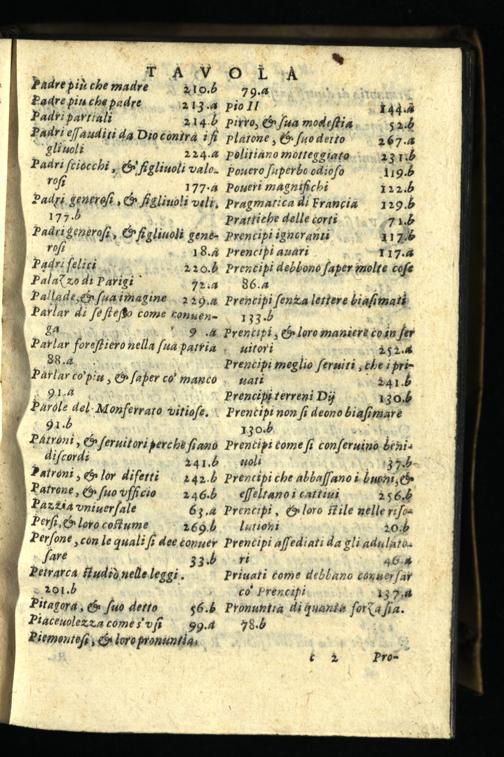 TAVOLA
Padre più che madre 210.b
Padre piu che padre 213.a
Padri partiali 214.b
Padri essauditi da Dio contra i fi
gliuoli 224.a
Padri sciocchi, & figliuoli valo-
rosi 177.a
Padri generosi, & figliuoli vili.
177.b
Padri generosi, & figliuoli gene-
rosi 18.a
Padri felici 220.b
Palazzo di Parigi 72.a
Pallade, & sua imagine 229.a
Parlar di se stesso come conuen-
ga 9 .a
Parlar forestiero nella sua patria
88.a
Parlar co'piu, & saper co' manco
91.a
Parole del Monferrato vitiose.
91.b
Patroni, & seruitori perche siano
discordi 241.b
Patroni, & lor difetti 242.b
Patrone, & suo vfficio 246.b
Pazzia vniuersale 63.a
Persi, & loro costume 269.b
Persone, con le quali si dee conuer
sare 33.b
Petrarca studiò nelle leggi.
201.b
Pitagora, & suo detto 56.b
Piaceuolezza come s'vsi 99.a
Piemontesi, & loro pronuntia.
79.a
pio II 144.a
Pirro, & sua modestia 52.b
Platone, & suo detto 267.a
Politiano motteggiato 231.b
Pouero superbo odioso 119.b
Poueri magnifichi 122.b
Pragmatica di Francia 129.b
Prattiche delle corti 71.b
Prencipi ignoranti 117.b
Prencipi auari 117.a
Prencipi debbono saper molte cose
86.a
Prencipi senza lettere biasimati
133.b
Prencipi, & loro maniere co in ser
uitori 252.a
Prencipi meglio seruiti, che i pri-
uati 241.b
Prencipi terreni Dij 130.b
Prencipi non si deono biasimare
130.b
Prencipi come si conseruino beni-
uoli 37.b
Prencipi che abbassano i buoni, &
essaltano i cattiui 256.b
Prencipi, & loro stile nelle riso-
lutioni 20.b
Prencipi assediati da gli adulato-
ri 46.a
Priuati come debbano conuersar
co' Prencipi 137.a
Pronuntia di quanta forza sia.
78.b
c 2 Pro-